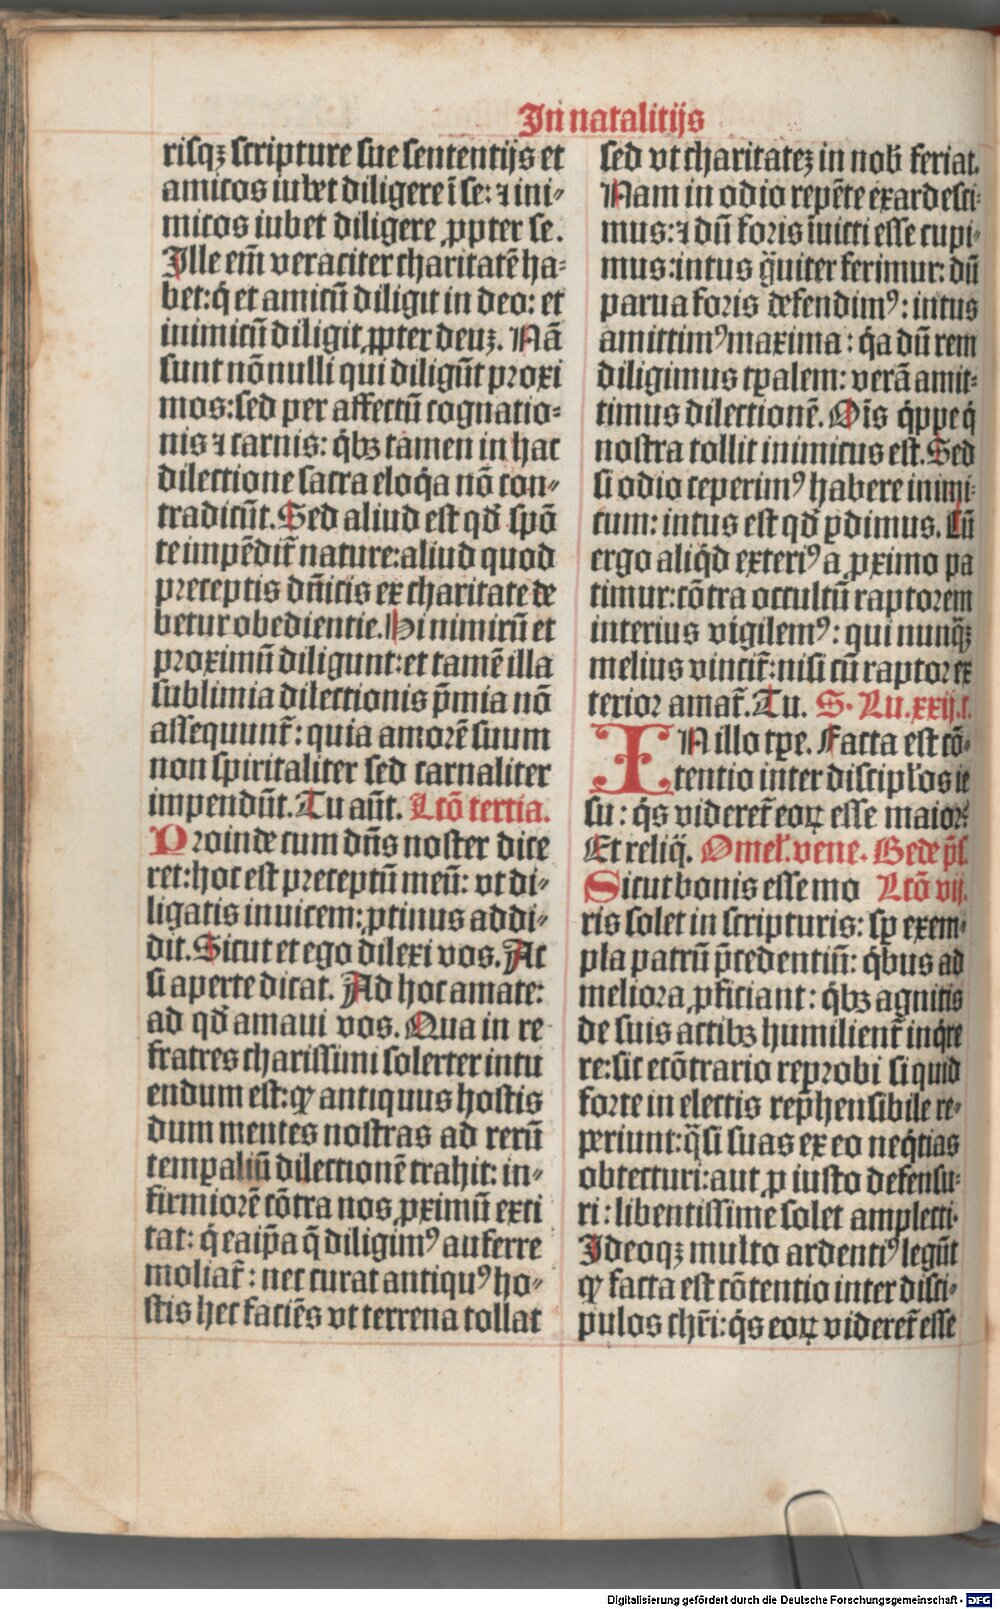 In natalitijs
risqꝫ scripture sue sententijs et
amicos iubet diligere ī se: ⁊ ini⸗
micos iubet diligere ꝓpter se.
Ille em̄ veraciter charitatē ha⸗
bet: q̇ et amicū diligit in deo: et
inimicū diligit ꝓpter deuꝫ. Nā
sunt nōnulli qui diligūt proxi
mos: sed per affectū cognatio⸗
nis ⁊ carnis: q̇bꝫ tamen in hac
dilectione sacra eloq̇a nō con⸗
tradicūt. Sed aliud est qđ spō
te impēdit̄ nature: aliud quod
preceptis dn̄icis ex charitate de
betur obedientie. Hi nimirū et
proximū diligunt: et tamē illa
sublimia dilectionis p̄mia nō
assequunt̄: quia amorē suum
non spiritaliter sed carnaliter
impendūt. Tu aūt. Lcō tertia.
Proinde cum dn̄s noster dice
ret: hoc est preceptū meū: vt di⸗
ligatis inuicem: ꝓtinus addi⸗
dit. Sicut et ego dilexi vos. Ac
si aperte dicat. Ad hoc amate:
ad qđ amaui vos. Qua in re
fratres charissimi solerter intu
endum est: ꝙ antiquus hostis
dum mentes nostras ad rerū
temꝑaliū dilectionē trahit: in⸗
firmiorē cōtra nos ꝓximū exci
tat: q̇ ea ip̄a q̄ diligimꝰ auferre
moliat̄: nec curat antiquꝰ ho⸗
stis hec faciēs vt terrena tollat
sed vt charitateꝫ in nob̄ feriat.
Nam in odio repēte exardesci⸗
mus: ⁊ dū foris īuicti esse cupi⸗
mus: intus g̈uiter ferimur: dū
parua foris defendimꝰ: intus
amittimꝰ maxima: q̇a dū rem
diligimus tꝑalem: verā amit⸗
timus dilectionē. Ois̄ q̇ppe q̇
nostra tollit inimicus est. Sed
si odio ceperimꝰ habere inimi⸗
cum: intus est qđ ꝑdimus. Cū
ergo aliq̇d exteriꝰ a ꝓximo pa
timur: cōtra occultū raptorem
interius vigilemꝰ: qui nunq̄ꝫ
melius vincit̄: nisi cū raptor ex
terior amat̄. Tu. S. Lu. xxij. c.
IN illo tꝑe. Facta est cō⸗
tentio inter discipłos ie
su: q̇s videret̄ eoꝝ esse maior.
Et reliq̇. Omeł. vene. Bede pr̄.
Sicut bonis esse mo Lcō vij.
ris solet in scripturis: sꝑ exem⸗
pla patrū p̄cedentiū: q̇bus ad
meliora ꝓficiant: q̇bꝫ agnitis
de suis actibꝫ humilient̄ inq̇re
re: sic ecōtrario reprobi si quid
forte in electis rep̄hensibile re⸗
periunt: q̈si suas ex eo neq̇tias
obtecturi: aut ꝑ iusto defensu⸗
ri: libentissime solet amplecti.
Ideoqꝫ multo ardentiꝰ legūt
ꝙ facta est cōtentio inter disci⸗
pulos chr̄i: q̇s eoꝝ videret̄ esse
Digitalisierung gefördert durch die Deutsche Forschungsgemeinschaft - DFG